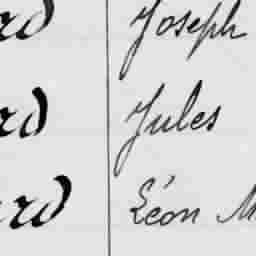 rd Joseph
rd Jules
rd Léon M